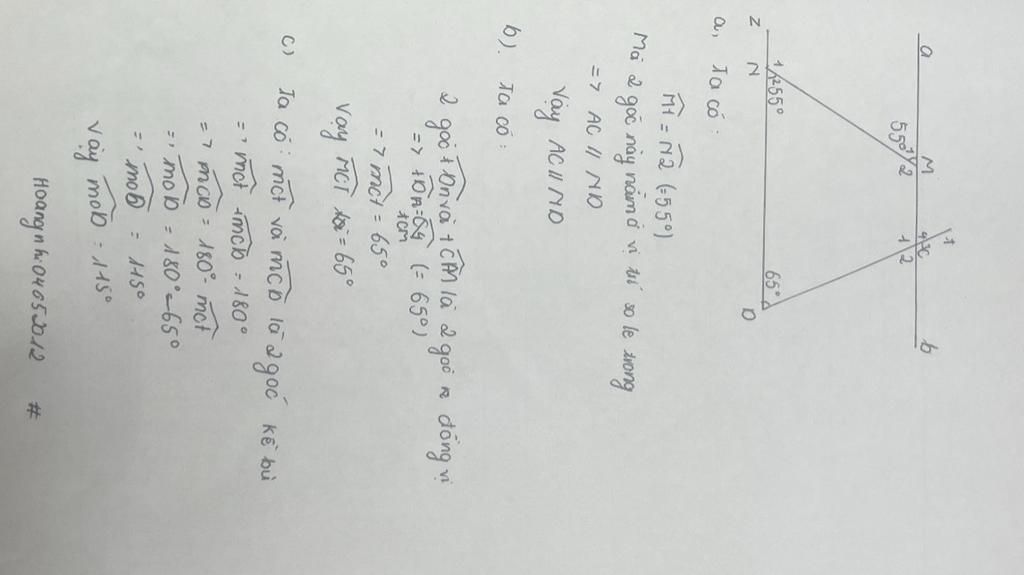 a M t b
55° 1 2 4 3 C 1 2
z N 1 2 55° 65° D
a, Ta có:
M1 = N2 (=55°)
Mà 2 góc này nằm ở vị trí so le trong
=> AC // ND
Vậy AC // ND
b). Ta có:
2 góc tDn và tCM là 2 góc ở đồng vị
=> tDn = (= 65°)
tcm
=> mct = 65°
Vậy MCT = 65°
c) Ta có: mct và mcD là 2 góc kề bù
=> mct + mcD = 180°
=> mcD = 180° - mct
=> mcD = 180° - 65°
=> mcD = 115°
Vậy mcD = 115°
Hoangnhi04052012 #